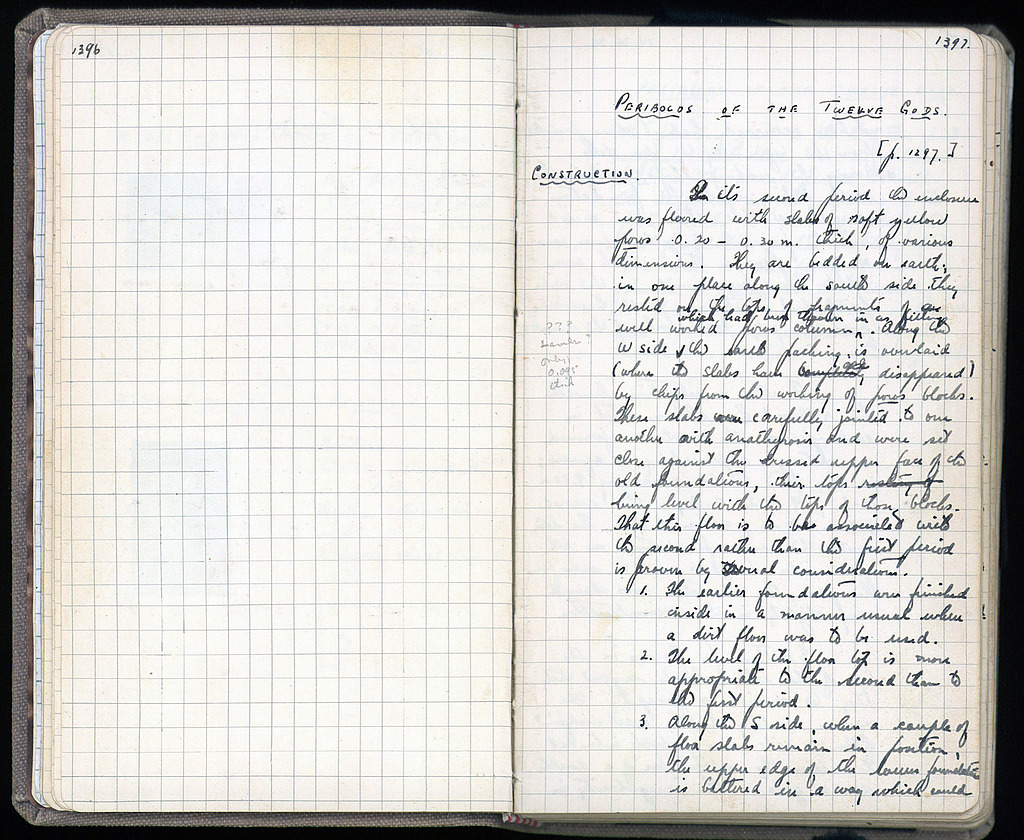 1396
1397.
PERIBOLOS OF THE TWELVE GODS.
[p. 1297.]
CONSTRUCTION.
In its second period the enclosure
was floored with slabs of soft yellow
poros 0.20 – 0.30 m. thick, of various
dimensions. They are bedded on earth;
in one place along the south side they
rested on the tops of fragments of
which had been thrown in as filling
well worked poros column. Along the
W side, the earth packing is overlaid
(where the slabs have disappeared)
by chips from the working of poros blocks.
These slabs were carefully jointed to one
another with anathyrosis and were set
close against the dressed upper face of the
old foundations, their tops resting of
being level with the tops of those blocks.
That this floor is to be associated with
the second rather than the first period
is proven by several considerations.
1. The earlier foundations were finished
inside in a manner usual where
a dirt floor was to be used.
2. The level of the floor top is more
appropriate to the second than to
the first period.
3. Along the S side, where a couple of
floor slabs remain in position,
the upper edge of the lower foundation
is battered in a way which could
???
Lower?
only
0.095
thick